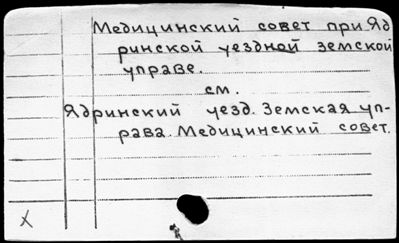 Медицинский совет при Яд
ринской уездной земской
управе.
см.
Ядринский уезд. Земская уп-
рава. Медицинский совет.
X